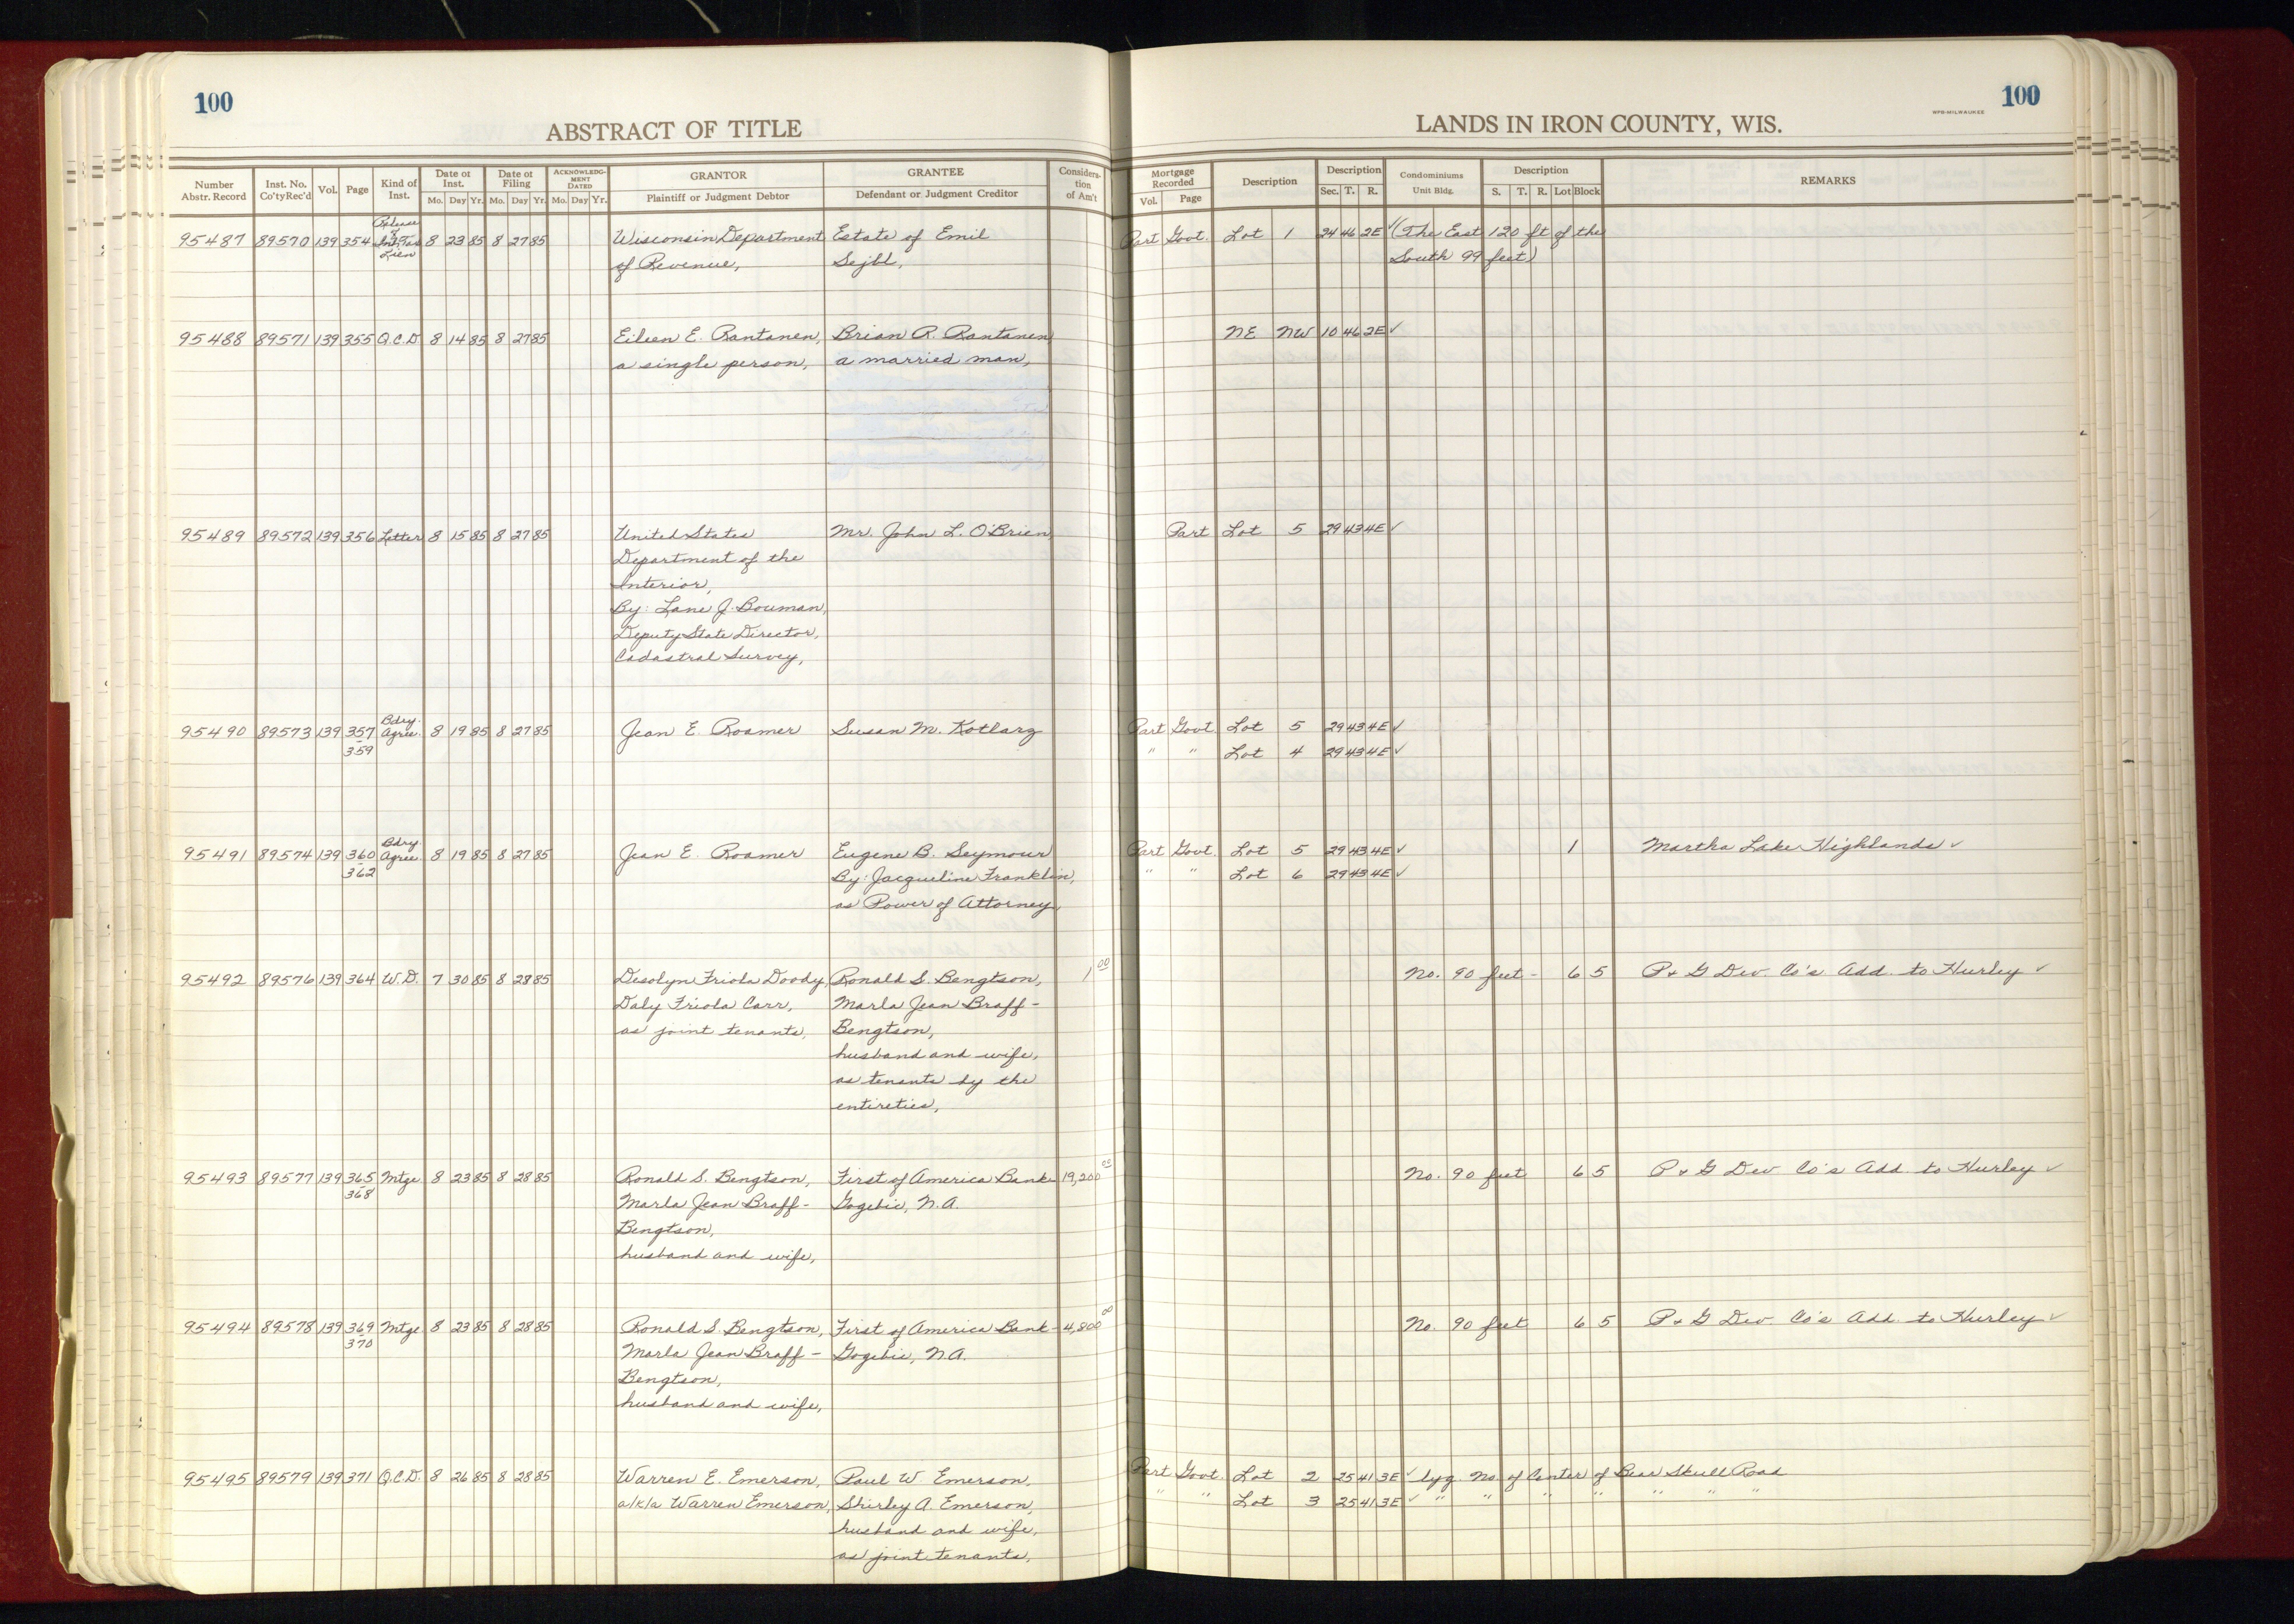 100
ABSTRACT OF TITLE
LANDS IN IRON COUNTY, WIS.
WPB-MILWAUKEE
100
Number Abstr. Record Inst. No. Co'ty Rec'd Vol. Page Kind of Inst. Date of Inst. Mo. Day Yr. Date of Filing Mo. Day Yr. ACKNOWLEDGMENT DATED Mo. Day Yr. GRANTOR Plaintiff or Judgment Debtor GRANTEE Defendant or Judgment Creditor Consideration of Am't Mortgage Recorded Vol. Page Description Description Sec. T. R. Condominiums Unit Bldg. Description S. T. R. Lot Block REMARKS
95487 89570 139 354 Release of Inh. Tax Lien 8 23 85 8 27 85 Wisconsin Department Estate of Emil Part Govt. Lot 1 24 46 2E ✓ (The East 120 ft of the
of Revenue, Sejbl, South 99 feet)
95488 89571 139 355 Q.C.D 8 14 85 8 27 85 Eileen E. Rantanen, Brian R. Rantanen NE NW 10 46 2E ✓
a single person, a married man,
95489 89572 139 356 Letter 8 15 85 8 27 85 United States Mr. John L. O'Brien Part Lot 5 29 43 4E ✓
Department of the
Interior,
By: Lane J. Bouman,
Deputy State Director,
Cadastral Survey,
95490 89573 139 357-359 Bdry. Agree. 8 19 85 8 27 85 Jean E. Roamer Susan M. Kotlarz Part Govt Lot 5 29 43 4E ✓
" " Lot 4 29 43 4E ✓
95491 89574 139 360-362 Bdry. Agree. 8 19 85 8 27 85 Jean E. Roamer Eugene B. Seymour Part Govt. Lot 5 29 43 4E ✓ 1 Martha Lake Highlands ✓
By: Jacqueline Franklin, " " Lot 6 29 43 4E ✓
as Power of Attorney,
95492 89576 139 364 W.D. 7 30 85 8 28 85 Desolyn Friola Doody, Ronald S. Bengtson, 1 00 No. 90 feet - 6 5 P & G Dev. Co's Add. to Hurley ✓
Daly Friola Carr, Marla Jean Braff-
as joint tenants, Bengtson,
husband and wife,
as tenants by the
entireties,
95493 89577 139 365-368 Mtge 8 23 85 8 28 85 Ronald S. Bengtson, First of America Bank- 19,200 00 No. 90 feet 6 5 P & G Dev Co's Add. to Hurley ✓
Marla Jean Braff- Gogebic, N.A.
Bengtson,
husband and wife,
95494 89578 139 369-370 Mtge 8 23 85 8 28 85 Ronald S. Bengtson, First of America Bank- 4,800 00 No. 90 feet 6 5 P & G Dev Co's Add. to Hurley ✓
Marla Jean Braff- Gogebic, N.A.
Bengtson,
husband and wife,
95495 89579 139 371 Q.C.D. 8 26 85 8 28 85 Warren E. Emerson, Paul W. Emerson, Part Govt. Lot 2 25 41 3E ✓ lyg. No. of Center of Bear Skull Road
a/k/a Warren Emerson, Shirley A. Emerson, " " Lot 3 25 41 3E ✓ " " " " " " "
husband and wife,
as joint tenants,